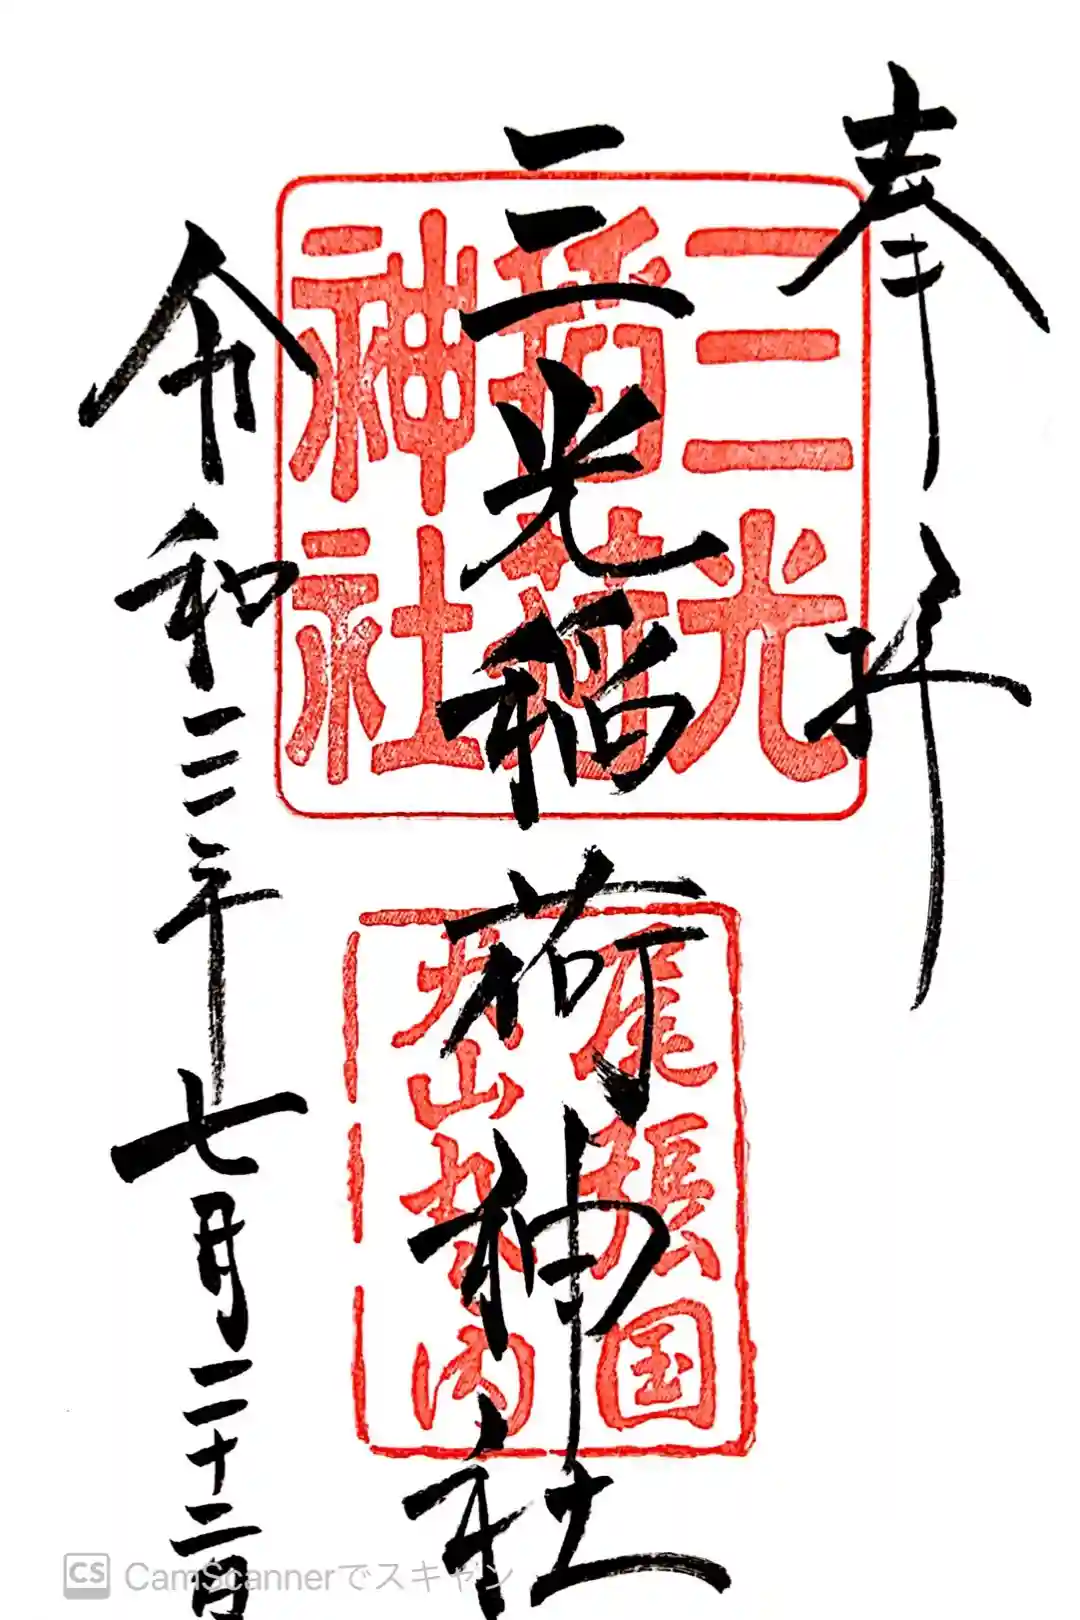 奉拝
三光稲荷神社
令和三年七月二十二日
三光
稲荷
神社
尾張国
犬山丸内
CS CamScannerでスキャン